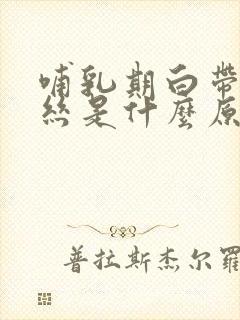 哺乳期白帶
絲是什麼原
普拉斯杰尔羅